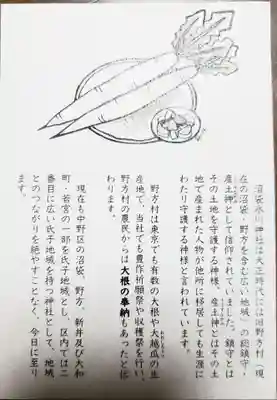 沼袋氷川神社は大正時代には旧野方村（現
在の沼袋・野方を含む広い地域）の総鎮守、
産土神として信仰されていました。鎮守とは
その土地を守護する神様、産土神とはその土
地で産まれた人物が他所に移居しても生涯に
わたり守護する神様と言われています。
野方村は東京でも有数の大根や大越瓜の生
産地で、当社でも豊作祈願祭や収穫祭を行い、
野方村の農民からは大根の奉納もあったと伝
わります。
現在も中野区の沼袋、野方、新井及び大和
町・若宮の一部を氏子地域とし、区内では二
番目に広い氏子地域を持つ神社として、地域
とのつながりを絶やすことなく、今日に至り
ます。